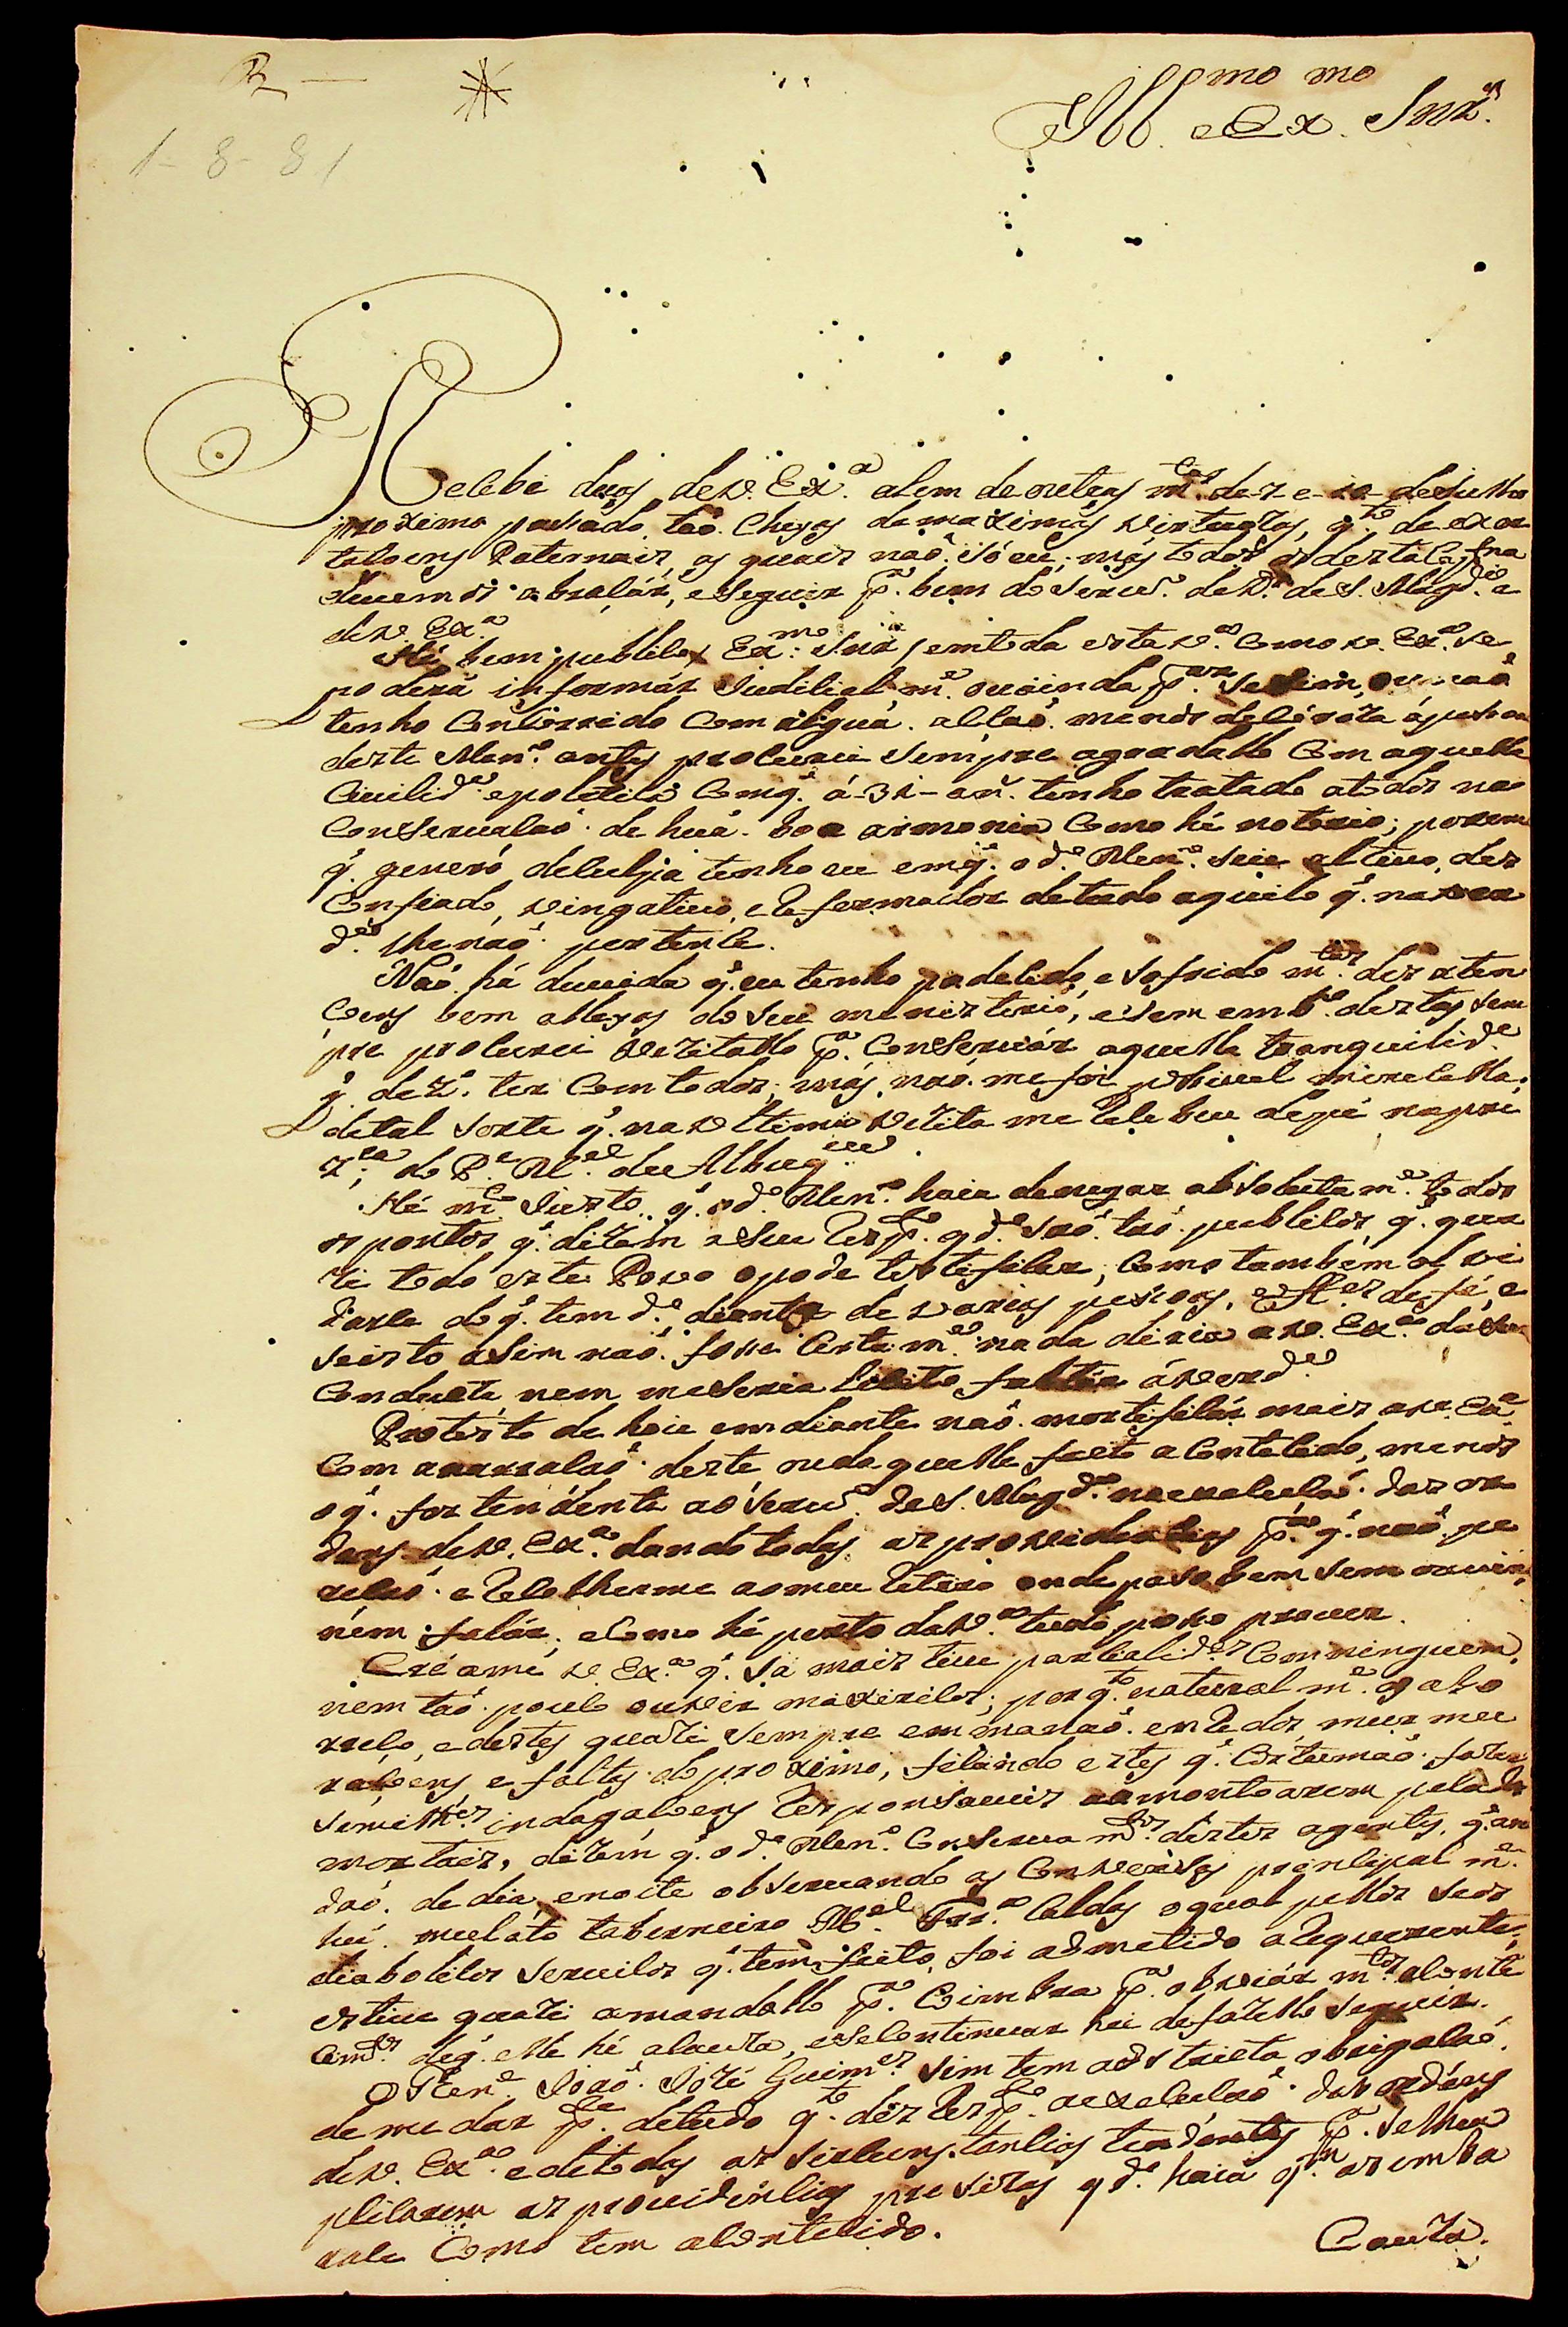 R —
1-8-81
Ill.mo e Ex.mo Snr.
Recebi duas de V. Ex.a alem de outras m.tas de 7 e 10 de Julho
proximo pasado, taõ cheyas da maximas virtuozas, q.to de exor
tasoens Paternais, as quais naõ só eu, mas todos os desta Cap.nia
devemos abrasár, e seguir p.a bem do Servi.o de D.s de S. Mag.de e
de V. Ex.a
Hé bem publico Ex.mo Snr em toda esta V.a como V. Ex.a se
poderá informár Judicial m.e ou ainda p.ar se sim, ou naõ
tenho concorrido com algua acsaõ menos decoroza á pesoa
deste Men.o antes procurei sempre agradallo com aquella
Civilid.e e politica comq. á 31 an. tenho tratado atodos na
Conservasaõ de huá boa armonia como hé notorio; porem
q. genero deculpa tenho eu emq. o d.o Men.o seia altivo, des
Confiado, vingativo, e Reformador de tudo aquilo q. na ver
d.e lhe naõ pertence.
Naõ há duvida q. eu tenho padecido, e sofrido m.tas dezaten
coens bem alheyas do seu menisterio, e sem emb.o destas sem
pre procurei vezitallo p.a Conservár aquella tranquilid.e
q. dez.o ter com todos; más, naõ me foi posivel merecella.
de tal sorte q. na ultima vezita me Recebeu de pé na pre
z.ca do P.e M.el de Albuq.ue
Hé m.to Justo q. o d.o Men.o haia denegar absoluta m.e todos
os pontos q. dizem a seu Resp.to q d.o saõ taõ publicos q. qua
zi todo este Povo o pode testeficar, como tambem al vi
darse do q. tem d.o diante de varias pesoas, e de fé, e
seisto asim naõ fose certa m.e nada diria a V. Ex.a da sua
Conducta, nem meseria licito faltár á verd.e
Protesto de hoie em diante naõ mortificár mais a V. Ex.a
Com anarrasaõ deste, nuda quelle facto acontecido, menos
oq. for tendente aó servi.o de S. Mag.de na execusaõ das or
dens de V. Ex.a dando todas as providencias p.a q. naõ pe
resaõ e Recolherme aomeu Retiro onde paso bem sem ouvir,
nem falár, e como hé perto da V.a tudo poso prover.
Créame V. Ex.a q. Ja mais tive parcialid.es com ninguem,
nem taõ pouco ouvir maxericos; porq.to natural m.e os abo
rreço, e destes quazi sempre em manaõ enRedos mur mu
rasoens, e faltas do proximo, ficando estes q. costumaõ fazer
semelh.es indagasoens Responsaveis a amontoarem pecados
mortais, dizem q. o d.o Men.o conserva m.tos destes agentes, q. an
daõ de dia, enoite observando as Conversas principal m.e
hú mulato taberneiro M.el Frr.a Caldas o qual pellos seos
diabolicos servicos q. tem feito, foi admetido a Requerente;
estive quazi amandallo p.a Coimbra p.a obviár m.tos aconte
cim.tos deq. elle hé a cauza, e se continuar hei de fazello seguir.
O Ten.e Joaõ Jozé Guim.es sim tem adstricta obrigasaõ
de me dar p.te de tudo q.to diz Resp.to a execusaõ das ordens
de V. Ex.a e de todas as sircunstancias tendentes p.a se lhe a
plicarem as providencias precizas q d.o haia q.m as emba
race como tem acontecido.
Cauza.